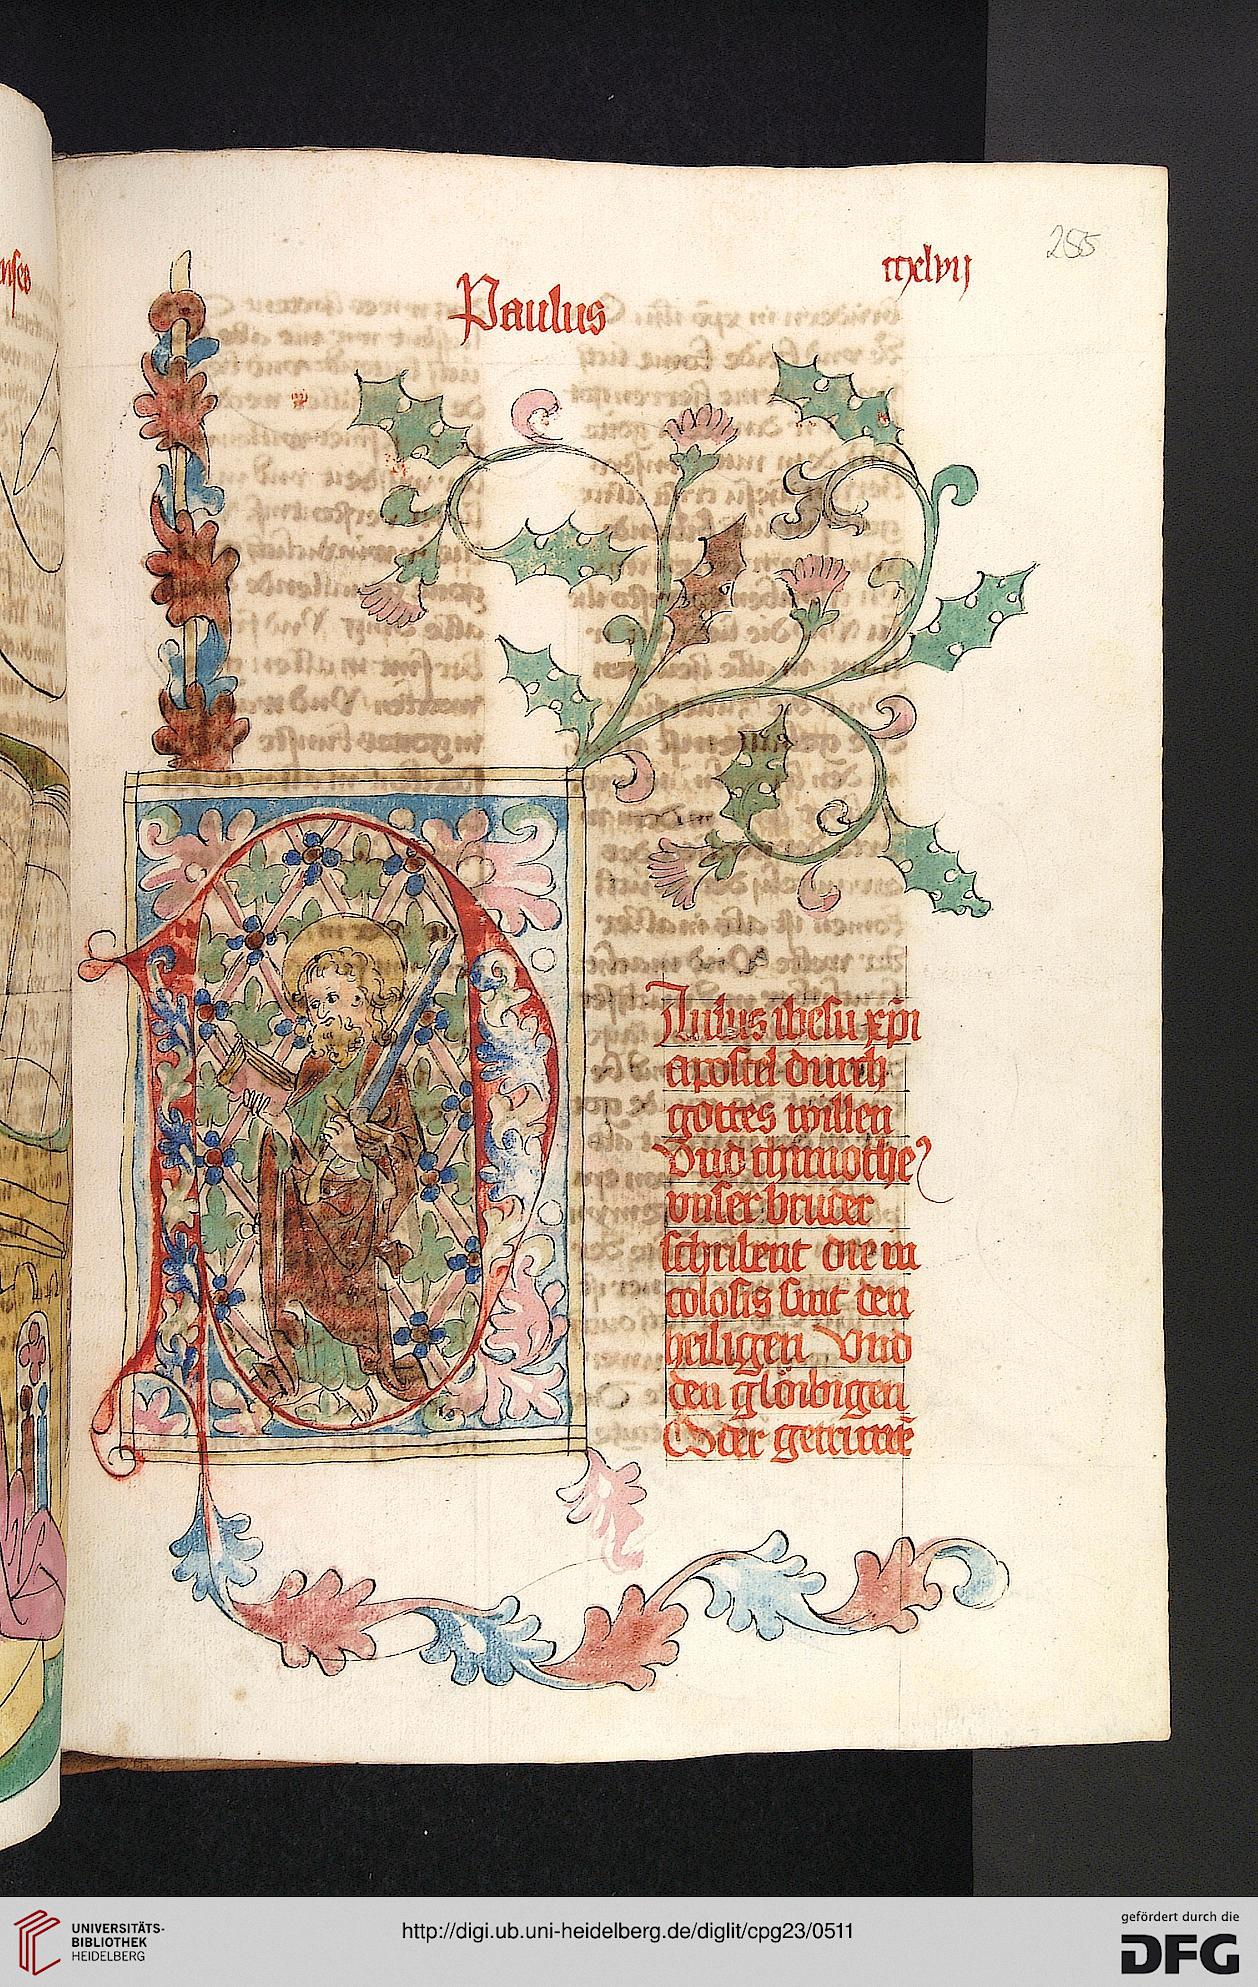 Paulus
ccxlvij
255
Aulus ihesu xpi
apostel durch
gottes willen
Vnd thimothe
vnser bruder
schribent die in
colosis sint den
heiligen Vnd
den glöibigen
Oder getruwē
UNIVERSITÄTS-
BIBLIOTHEK
HEIDELBERG
http://digi.ub.uni-heidelberg.de/diglit/cpg23/0511
gefördert durch die
DFG